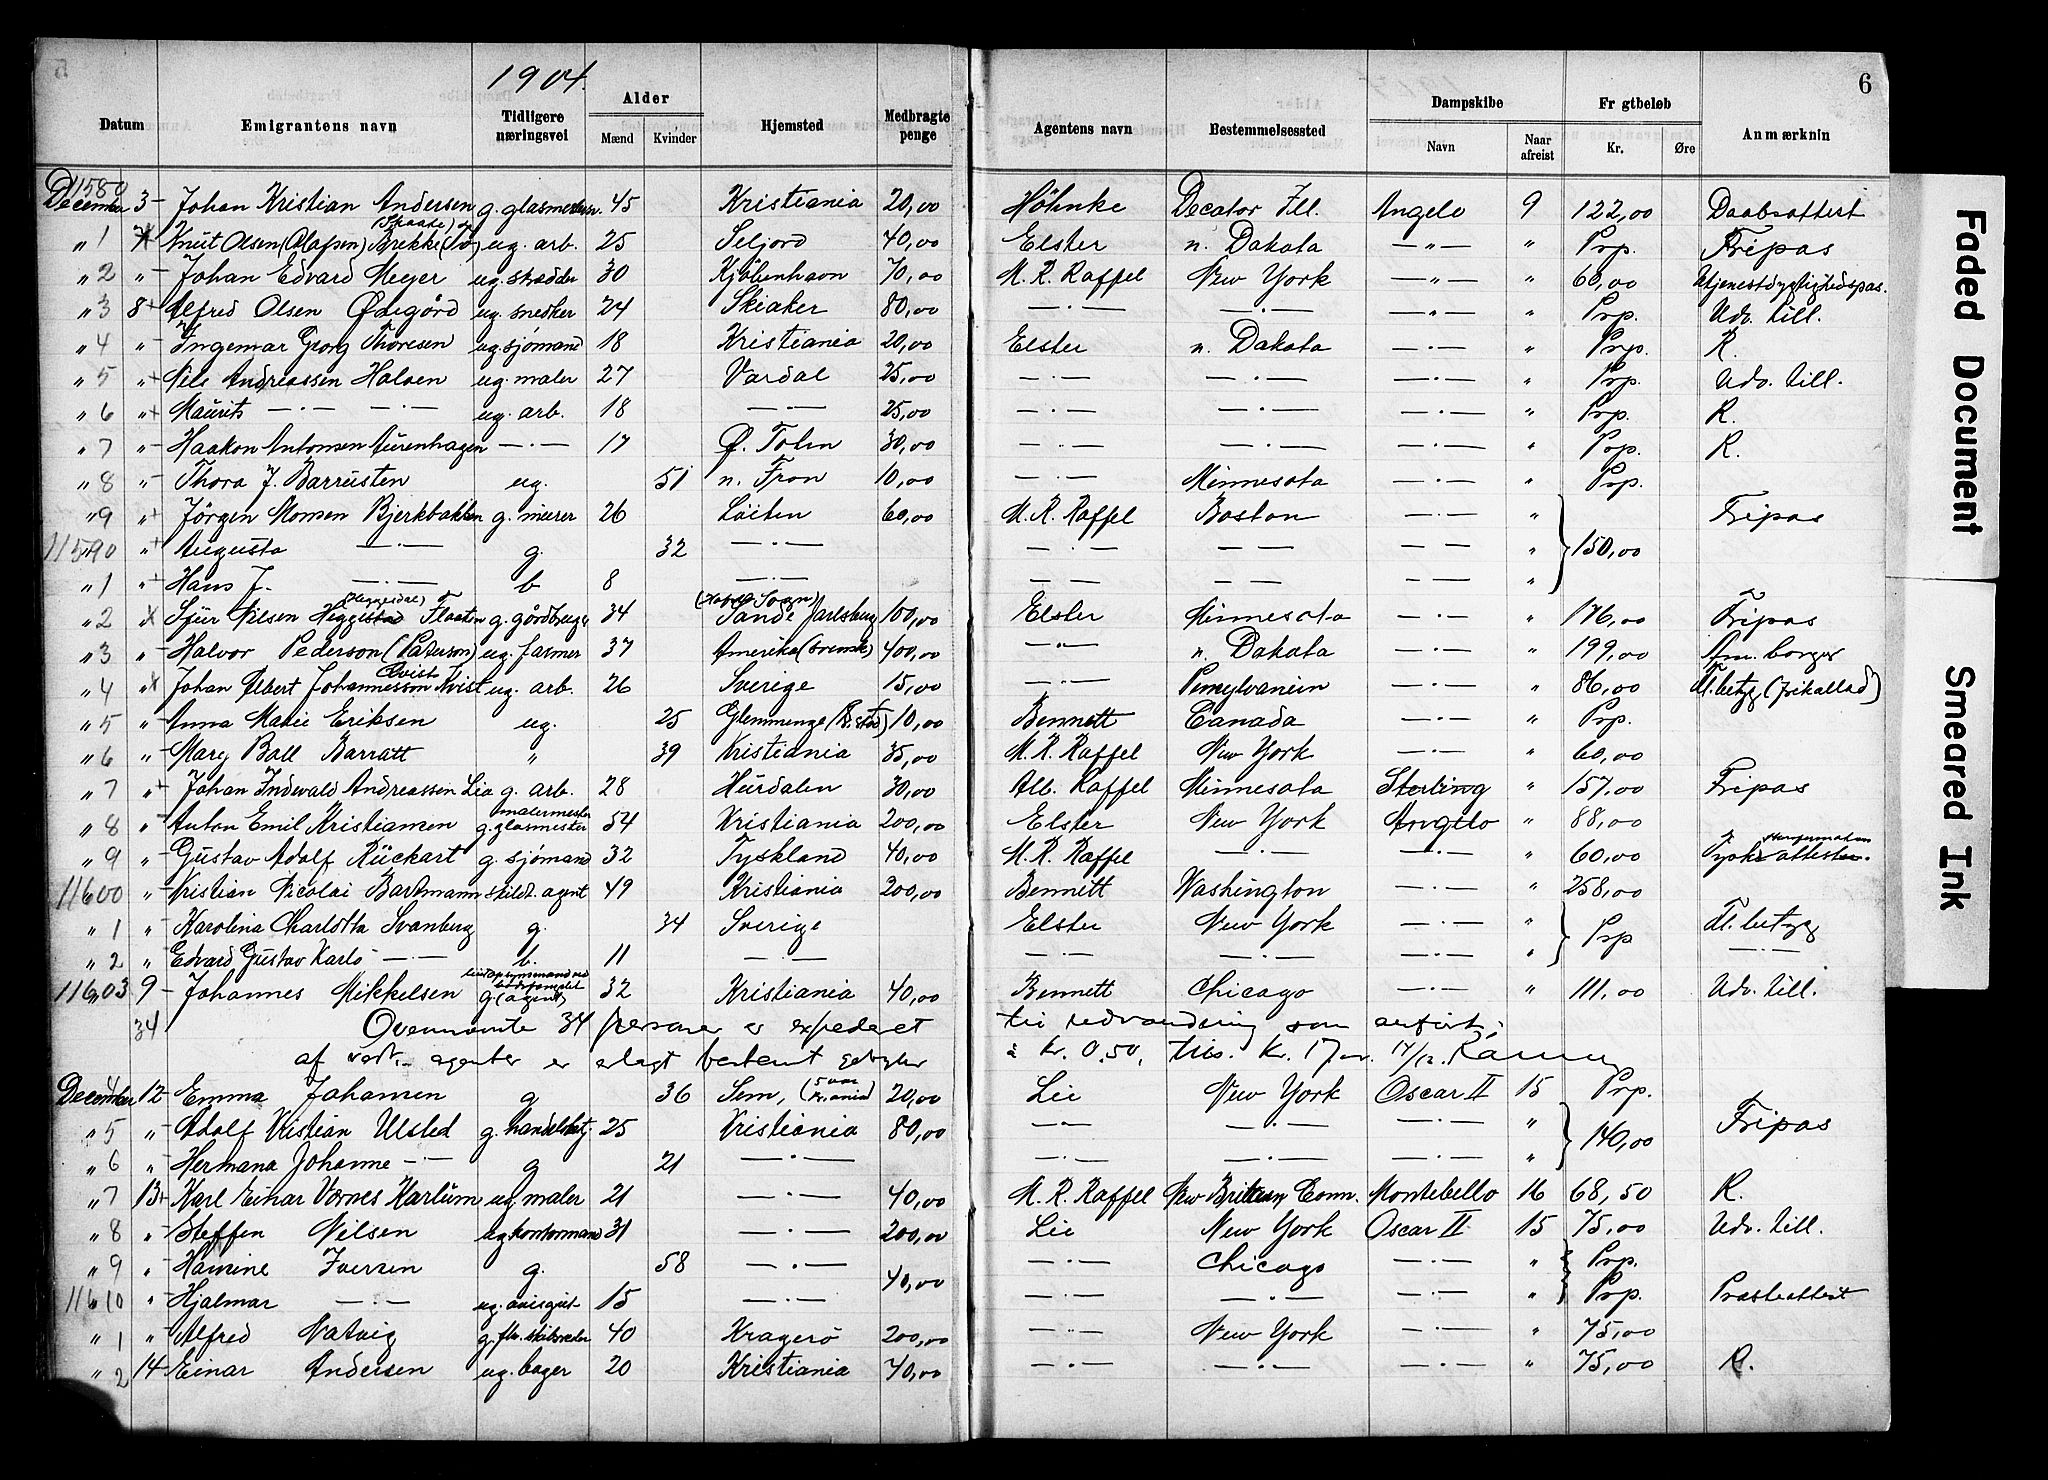 1904.
6
Datum | Emigrantens navn | Tidligere næringsvei | Alder Mænd | Kvinder | Hjemsted | Medbragte penge | Agentens navn | Bestemmelsessted | Dampskibe Navn | Naar afreist | Fr gtbeløb Kr. | Øre | Anmærknin
11580 December 3 - Johan Kristian Andersen g. glasmester 45 Kristiania 20,00 Höhnke Decator Ill. Angelo 9 122,00 Daabsattest
" 1 7 Knut Olsen (Olafsen) Brekke ug. arb. 25 Seljord 40,00 Elster n. Dakota — " — " Prp. Fripas
" 2 " - Johan Edvard Meyer ug. skrædder 30 Kjöbenhavn 70,00 M. R. Raffel New York — " — " 60,00 Utjenestdygtighedspas.
" 3 8 + Alfred Olsen Ødegård ug. snedker 24 Skiaker 80,00 — · — — · — — " — " Prp. Udv. till.
" 4 " - Ingemar Georg Thoresen ug. sjömand 18 Kristiania 20,00 Elster n. Dakota — · — " Prp. R.
" 5 " + Nils Andreassen Halsen ug. maler 27 Vardal 25,00 — · — — · — — · — " Prp. Udv. till.
" 6 " + Maurits — · — — · — ug. arb. 18 — · — 25,00 — · — — · — — · — " Prp. R.
" 7 " - Haakon Antonsen Aurenhagen — · — 17 Ø. Toten 30,00 — · — — · — — · — " Prp. R.
" 8 " - Thora J. Barrusten ug. 51 n. Fron 10,00 — · — Minnesota — · — " Prp.
" 9 " + Jörgen Monsen Bjerkbakken g. murer 26 Löiten 60,00 M. R. Raffel Boston — · — " Fripas
11590 " + Augusta — · — g. 32 — · — — · — — — — — " } 150,00
" 1 " + Hans J. — · — b 8 — · — — — — — — — "
" 2 " x Sjur Nilsen Heggestad (Heggesdal) Flaaten g. gårdbruger 34 Sande Jarlsberg 100,00 Elster Minnesota — · — " 176,00 Fripas
" 3 " - Halvor Pederson (Paterson) ug. farmer 37 Amerika (svensk) 400,00 — · — n. Dakota — · — " 199,00 Am. borger
" 4 " x Johan Albert Johannesson Kvist (Qvist) ug. arb. 26 Sverige 15,00 — · — Pensylvanien — · — " 86,00 Fl. betyg (frikallad)
" 5 " - Anna Marie Eriksen ug. 25 Glemmenge 10,00 Bennett Canada — · — " Prp.
" 6 " - Mary Ball Barratt " 39 Kristiania 35,00 M. R. Raffel New York — · — " 60,00
" 7 " + Johan Indevald Andreassen Lia g. arb. 28 Hurdalen 30,00 Alb. Raffel Minnesota Sterling " 157,00 Fripas
" 8 " - Anton Emil Kristiansen malermester g. glasmester 54 Kristiania 200,00 Elster New York Angelo " 88,00
" 9 " - Gustav Adolf Rückart g. sjömand 32 Tyskland 40,00 M. R. Raffel — · — — · — " 60,00 Tysk attest.
11600 " - Kristian Nicolai Bartmann skildt. agent 49 Kristiania 200,00 Bennett Washington — · — " 258,00
" 1 " - Karolina Charlotta Svanberg g. 34 Sverige Elster New York — · — " } Prp Fl. betyg
" 2 " - Edvard Gustav Karlo — · — b. 11 — · — — · — — · — — · — " — · —
11603 9 - Johannes Mikkelsen g. (agent) 32 Kristiania 40,00 Bennett Chicago — · — " 111,00 Udv. till.
34 Ovennævnte 34 personer er expederet til udvandring som anfört;
af vedk. agenter er erlagt bestemt gebyr à kr. 0.50, tils. kr. 17.00. 14/12.
December 4 12 - Emma Johansen g 36 Sem, 20,00 Lie New York Oscar II 15 Prp.
" 5 " - Adolf Kristian Ulsted g. handelsbetj. 25 Kristiania 80,00 — · — — · — — · — " } 140,00 Fripas
" 6 " - Hermana Johanne — · — g 21 — · — — · — — · — — · — "
" 7 13 + Karl Einar Vornes Karlum ug. maler 21 — · — 40,00 M. R. Raffel New Brittain Conn. Montebello 16 68,50 R.
" 8 " - Steffen Nilsen ug kontormand 31 — · — 200,00 Lie New York Oscar II 15 75,00 Udv. till.
" 9 " - Hansine Iversen g. 58 — · — 40,00 — · — Chicago — · — " Prp.
11610 " - Hjalmar — · — ug. avisgut 15 — · — — · — — · — — · — " Prp. Prasteattest
" 1 " - Alfred Natvig g. fhv. skibsreder 40 Kragerö 200,00 — · — New York — · — " 75,00
" 2 14 - Einar Andersen ug. bager 20 Kristiania 40,00 — · — — · — — · — " 75,00 R.
Faded Document
Smeared Ink